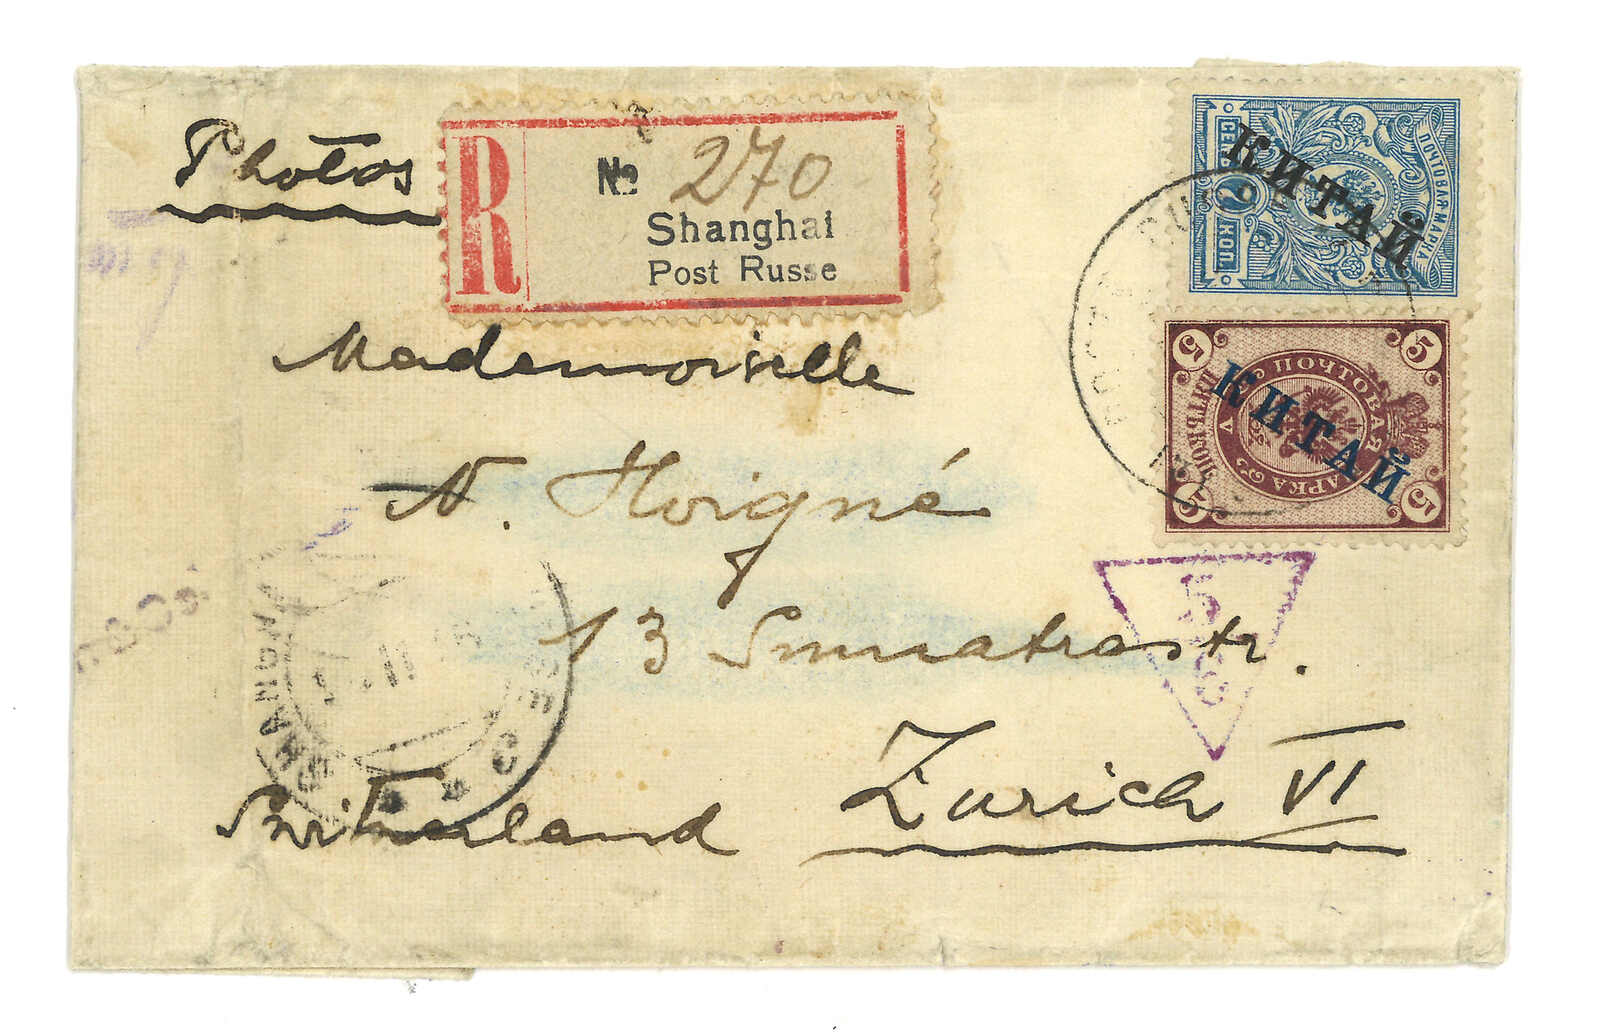 Photos
R
№ 270
Shanghai
Post Russe
Mademoiselle
N. Hoigné
13 Sumatrastr.
Zurich VI
Switzerland
ПОЧТОВАЯ МАРКА
СЕМЬ 7 КОП.
КИТАЙ
5 5
ПОЧТОВАЯ МАРКА
ПЯТЬ КОП.
КИТАЙ
5 5
SHANGHAI